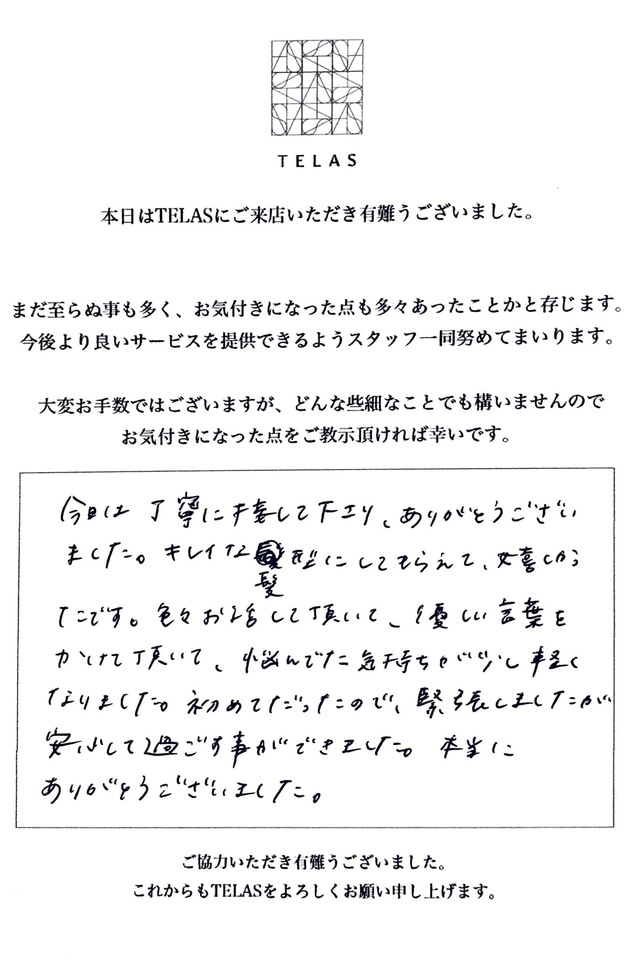 TELAS
本日はTELASにご来店いただき有難うございました。
まだ至らぬ事も多く、お気付きになった点も多々あったことかと存じます。
今後より良いサービスを提供できるようスタッフ一同努めてまいります。
大変お手数ではございますが、どんな些細なことでも構いませんので
お気付きになった点をご教示頂ければ幸いです。
今日は丁寧に接して下さり、ありがとうござい
ました。キレイな髪型にしてもらえて、嬉しかっ
たです。色々お話して頂いて、優しい言葉を
かけて頂いて、悩んでた気持ちが少し軽く
なりました。初めてだったので、緊張しましたが
安心して過ごす事ができました。本当に
ありがとうございました。
ご協力いただき有難うございました。
これからもTELASをよろしくお願い申し上げます。